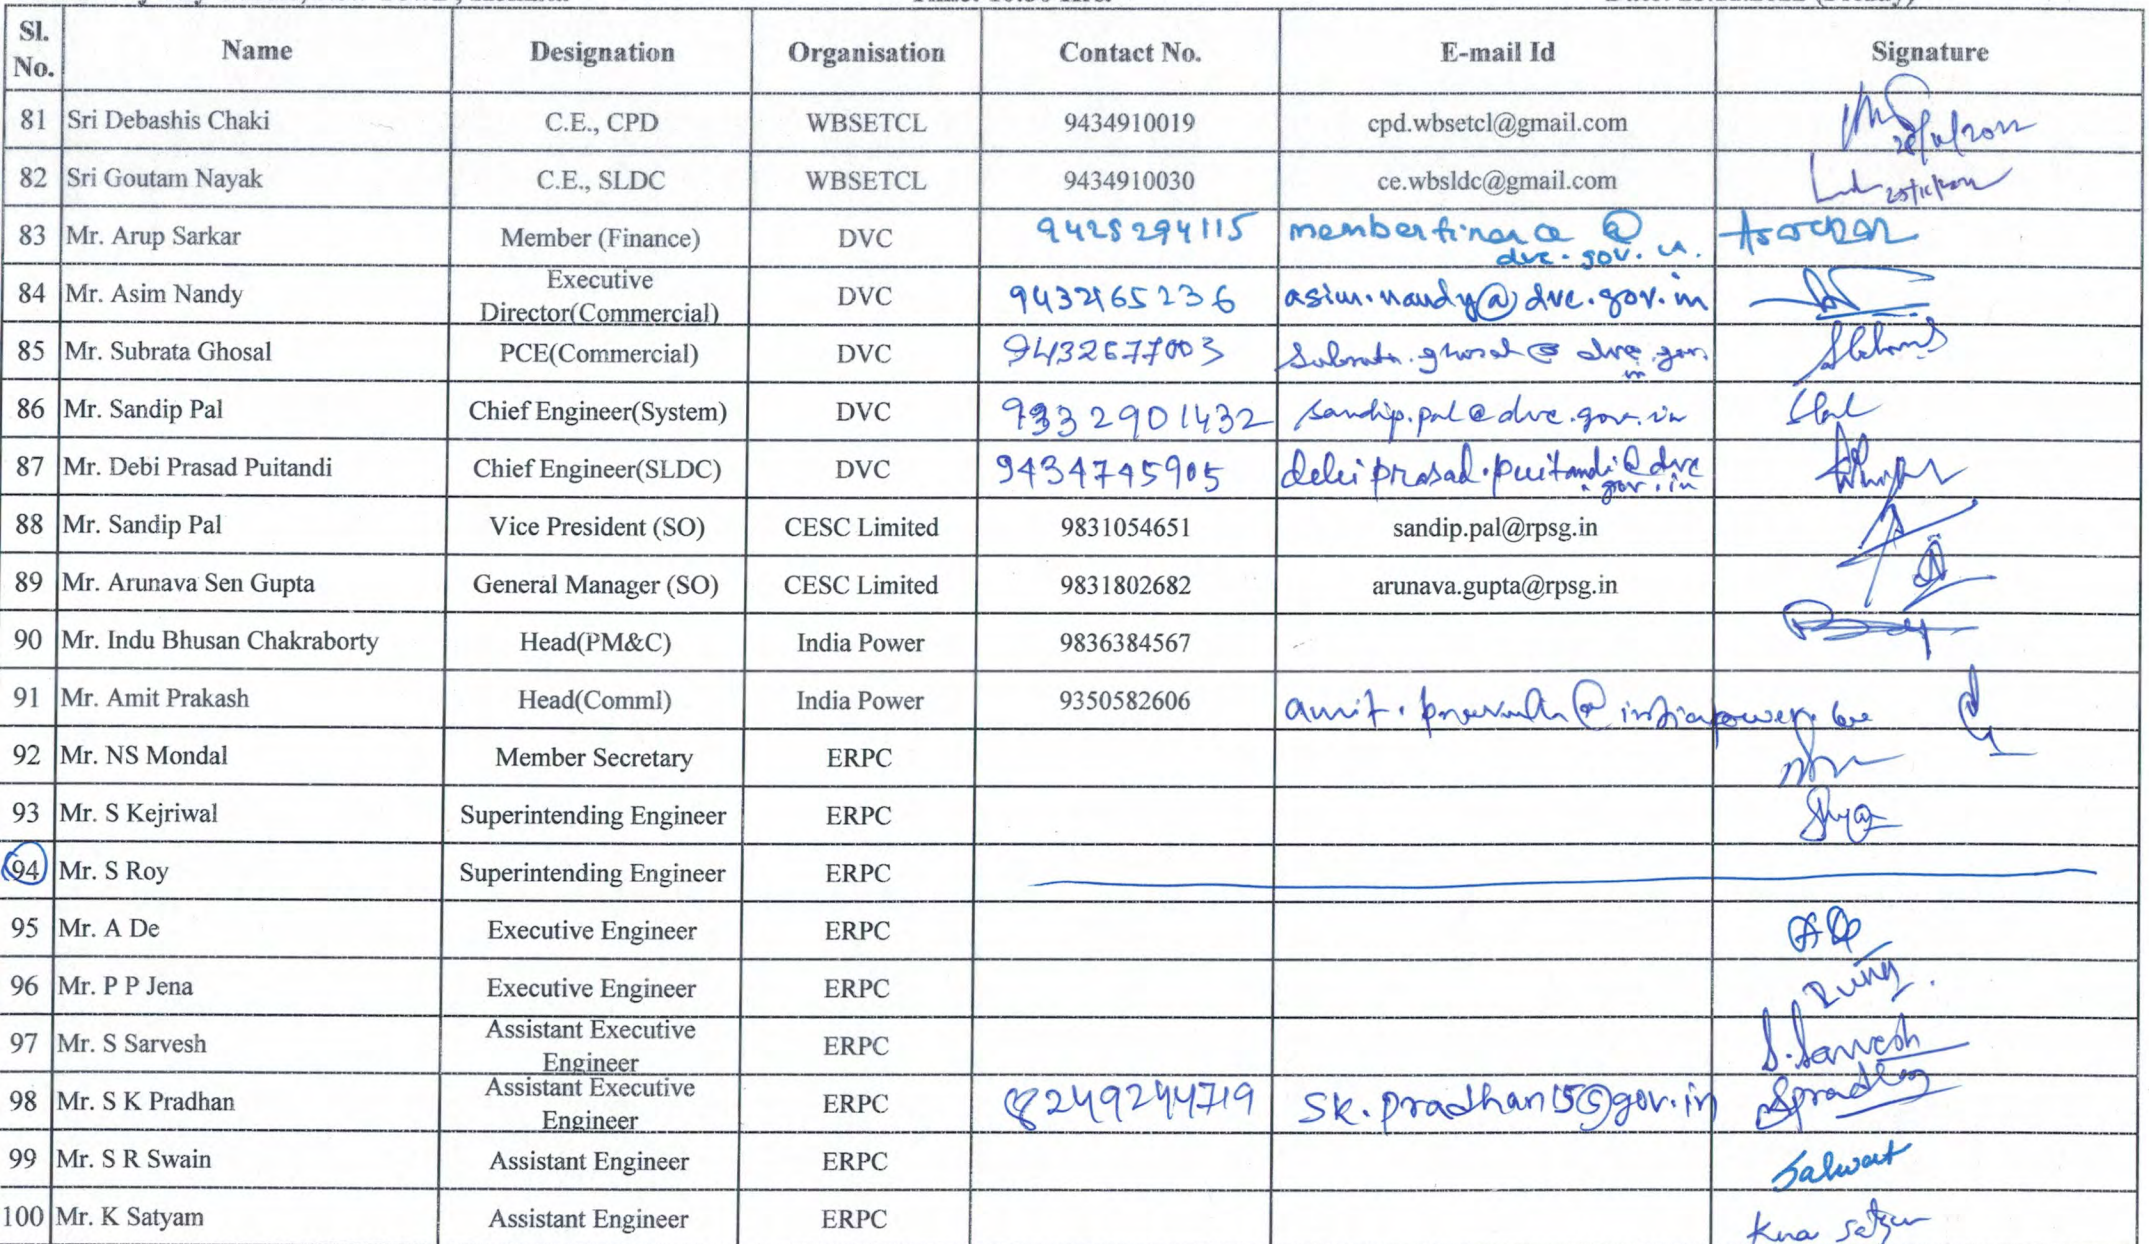 Sl. No. Name Designation Organisation Contact No. E-mail Id Signature
81 Sri Debashis Chaki C.E., CPD WBSETCL 9434910019 cpd.wbsetcl@gmail.com
82 Sri Goutam Nayak C.E., SLDC WBSETCL 9434910030 ce.wbsldc@gmail.com
83 Mr. Arup Sarkar Member (Finance) DVC 9425294115 memberfinance@
dvc.gov.in
84 Mr. Asim Nandy Executive Director(Commercial) DVC asim.nandy@dvc.gov.in
85 Mr. Subrata Ghosal PCE(Commercial) DVC 9432677003 subrata.ghosal@dvc.gov.
in
86 Mr. Sandip Pal Chief Engineer(System) DVC 9332901432 sandip.pal@dvc.gov.in
87 Mr. Debi Prasad Puitandi Chief Engineer(SLDC) DVC 9434745905 debiprasad.puitandi@dvc
.gov.in
88 Mr. Sandip Pal Vice President (SO) CESC Limited 9831054651 sandip.pal@rpsg.in
89 Mr. Arunava Sen Gupta General Manager (SO) CESC Limited 9831802682 arunava.gupta@rpsg.in
90 Mr. Indu Bhusan Chakraborty Head(PM&C) India Power 9836384567
91 Mr. Amit Prakash Head(Comml) India Power 9350582606
92 Mr. NS Mondal Member Secretary ERPC
93 Mr. S Kejriwal Superintending Engineer ERPC
94 Mr. S Roy Superintending Engineer ERPC
95 Mr. A De Executive Engineer ERPC
96 Mr. P P Jena Executive Engineer ERPC
97 Mr. S Sarvesh Assistant Executive Engineer ERPC S. Sarvesh
98 Mr. S K Pradhan Assistant Executive Engineer ERPC 8249244719 sk.pradhan15@gov.in Spradhan
99 Mr. S R Swain Assistant Engineer ERPC
100 Mr. K Satyam Assistant Engineer ERPC